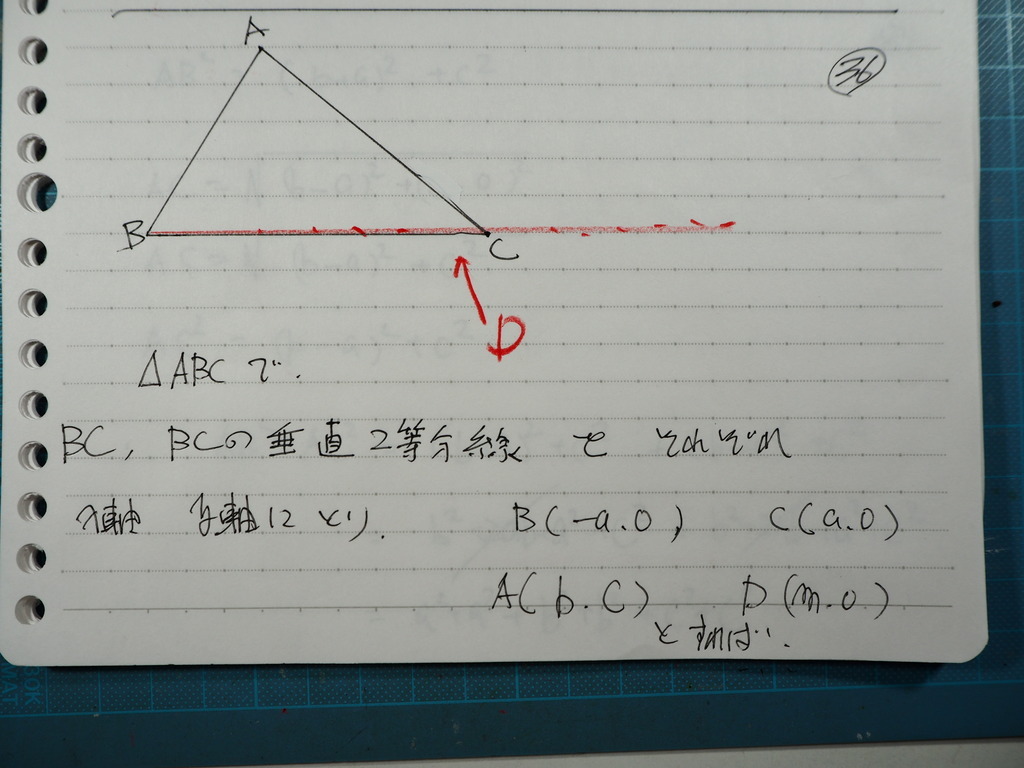 A
36
B
C
D
△ABC で.
BC, BCの垂直2等分線 を それぞれ
x軸 y軸に とり. B(-a.0) C(a.0)
A(b.C) D(m.0)
と すれば..